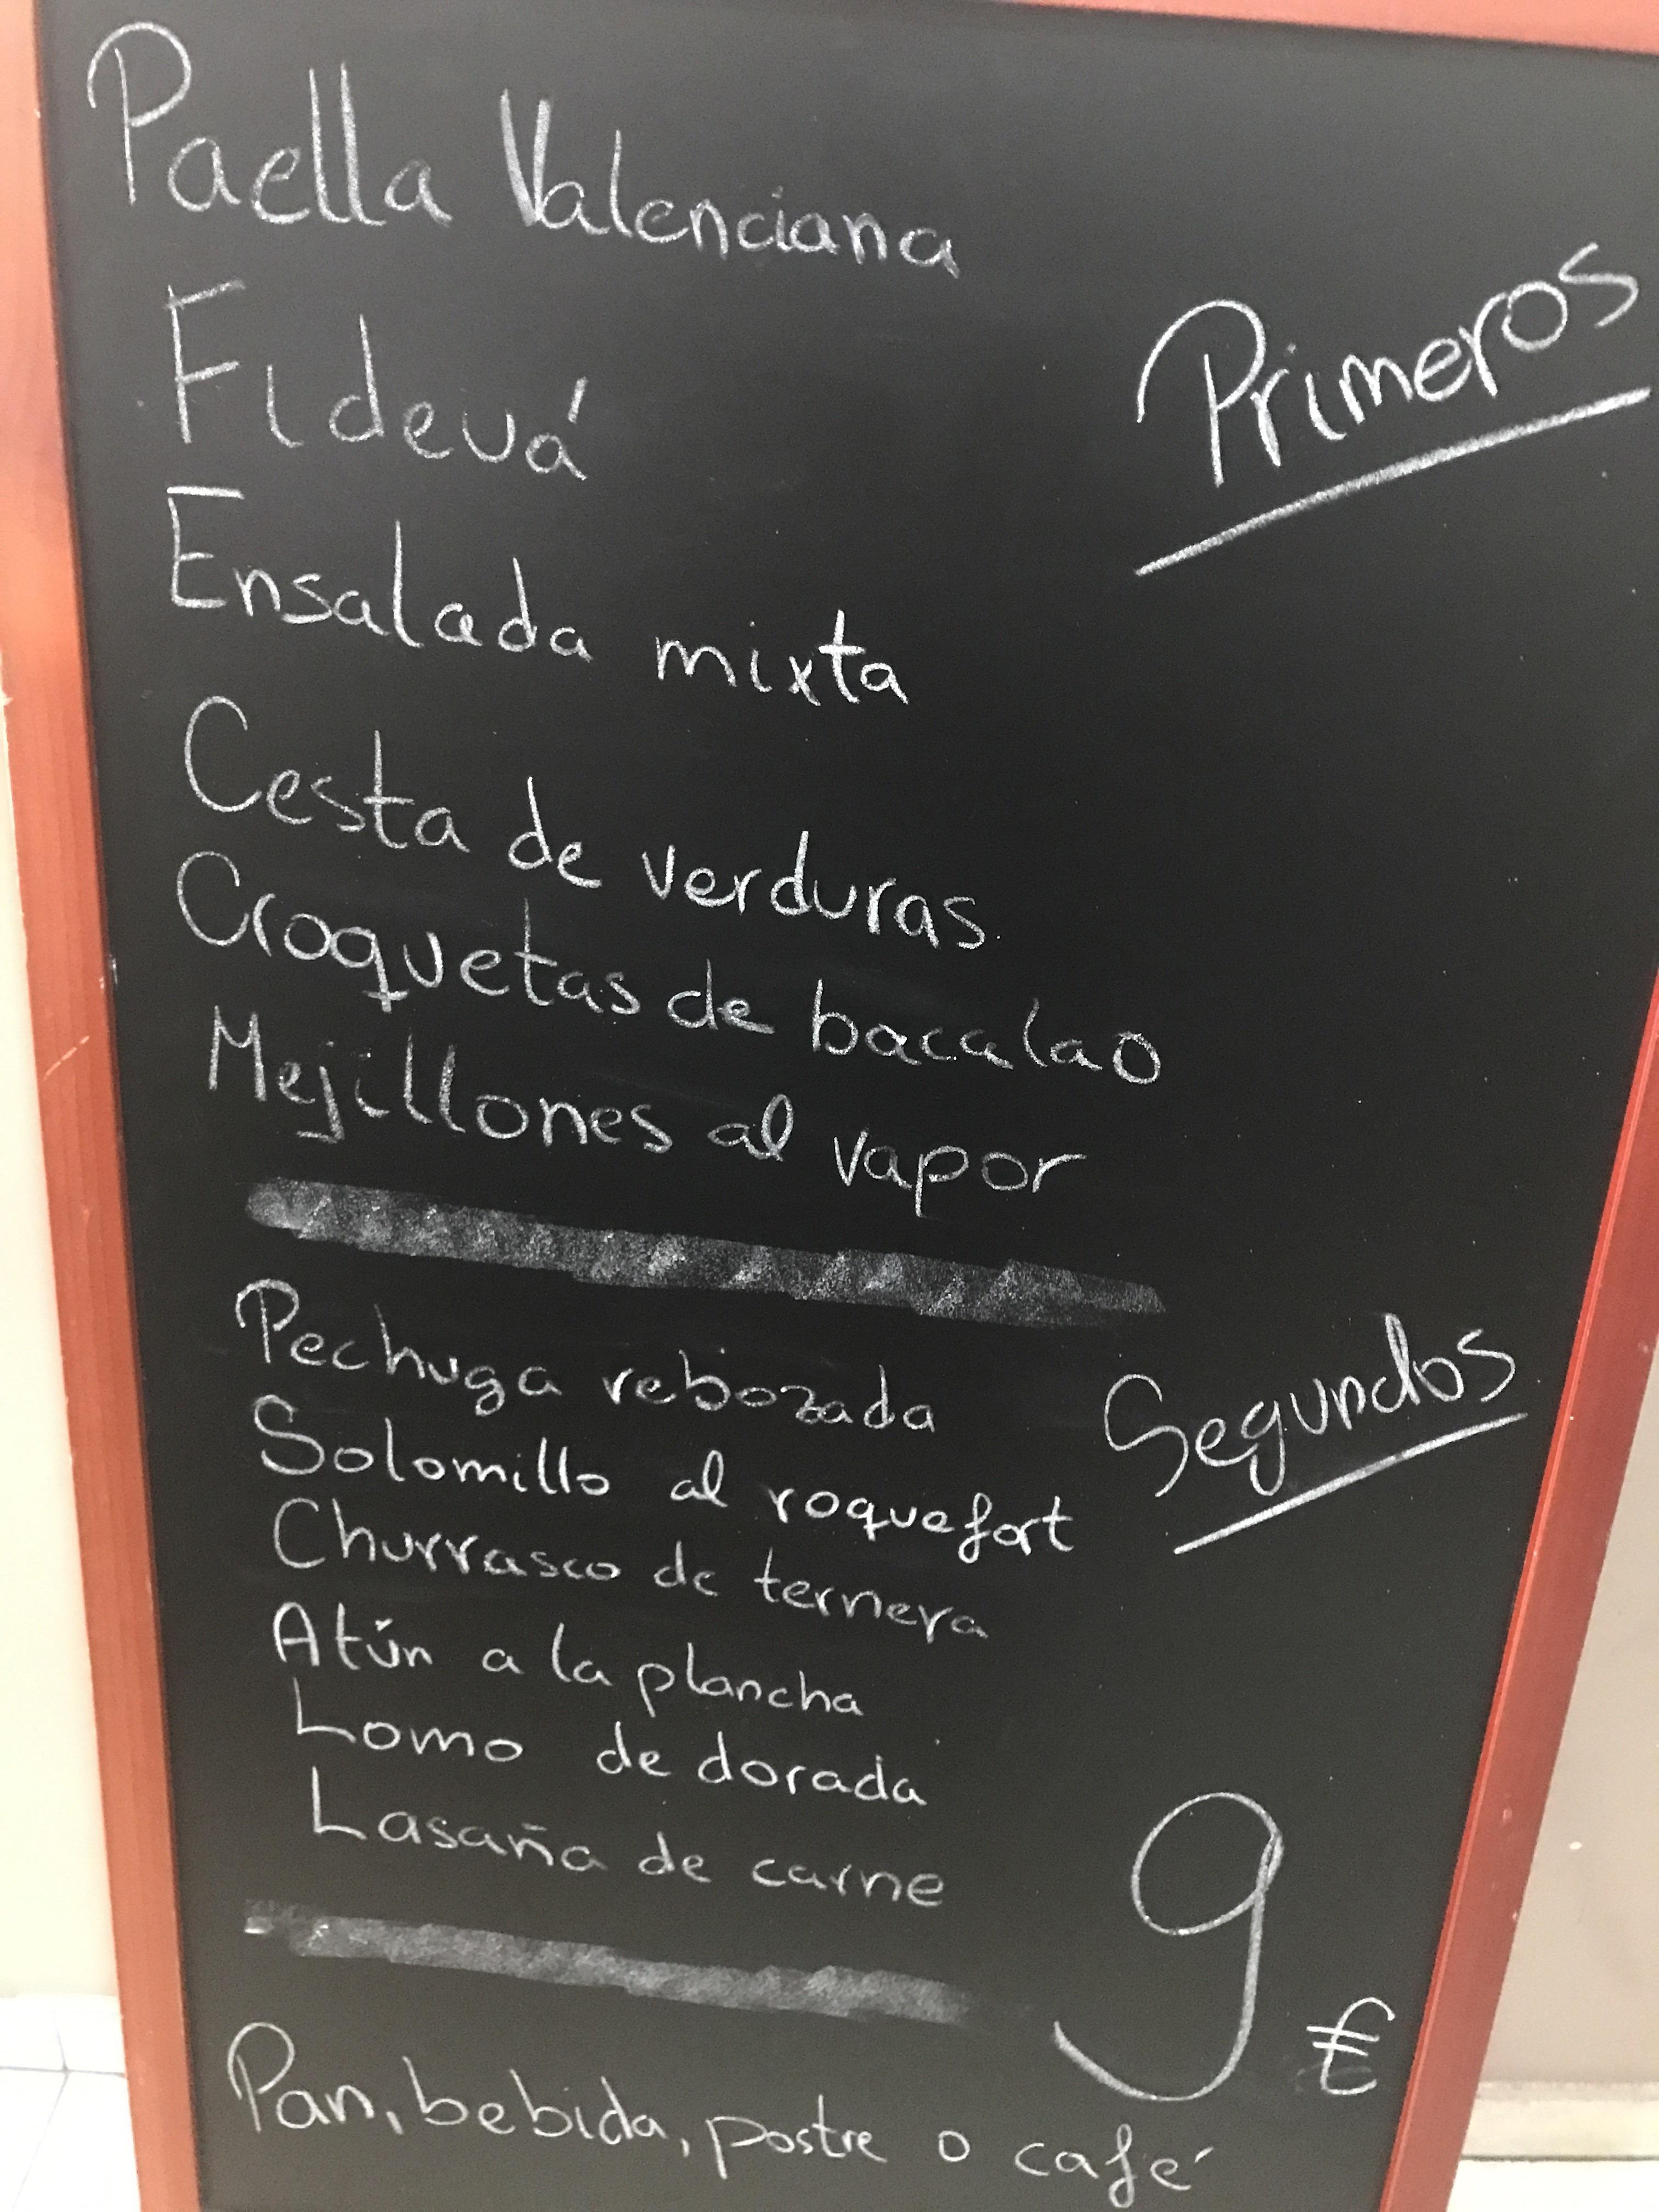 Paella Valenciana
Fideuá
Primeros
Ensalada mixta
Cesta de verduras
Croquetas de bacalao
Mejillones al vapor
Pechuga rebozada
Segundos
Solomillo al roquefort
Churrasco de ternera
Atún a la plancha
Lomo de dorada
Lasaña de carne
9 €
Pan, bebida, postre o café